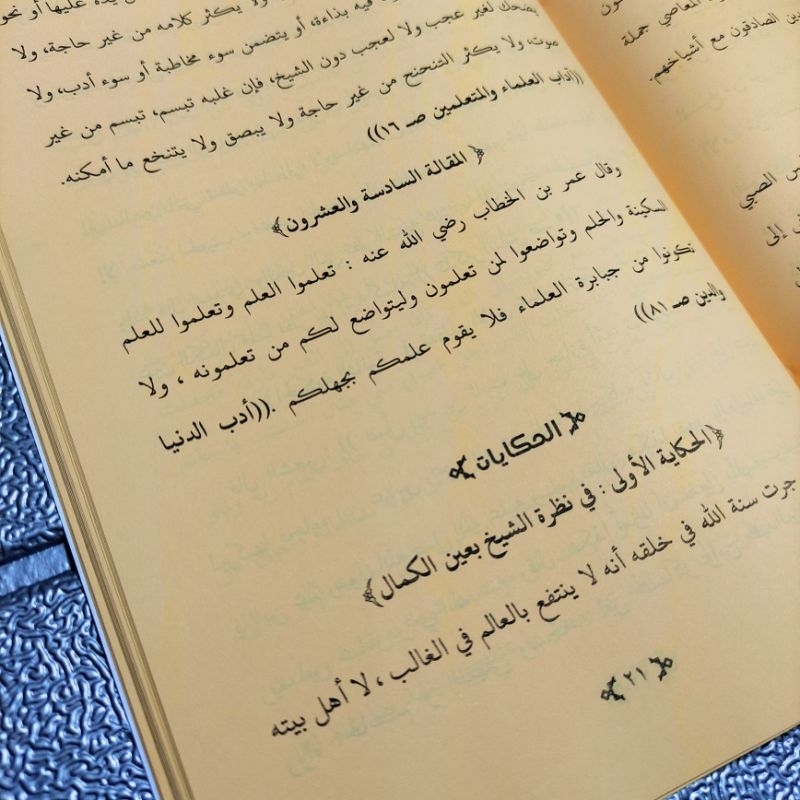 ولا يكثر كلامه من غير حاجة، ولا
يضحك لغير عجب ولا لعجب دون الشيخ، فإن غلبه تبسم، تبسم من غير
صوت، ولا يكثر التنحنح من غير حاجة ولا يبصق ولا يتنخع ما أمكنه.
((آداب العلماء والمتعلمين صـ ١٦))
﴿ المقالة السادسة والعشرون﴾
وقال عمر بن الخطاب رضي الله عنه : تعلموا العلم وتعلموا للعلم
السكينة والحلم وتواضعوا لمن تعلمون وليتواضع لكم من تعلمونه ، ولا
تكونوا من جبابرة العلماء فلا يقوم علمكم بجهلكم .((أدب الدنيا
والدين صـ ٨١))
﴿الحكايات﴾
﴿الحكاية الأولى : في نظرة الشيخ بعين الكمال﴾
جرت سنة الله في خلقه أنه لا ينتفع بالعالم في الغالب ، لا أهل بيته
﴿٢١﴾
المعاصي جملة
الصادقون مع أشياخهم.
الصبي
إلى